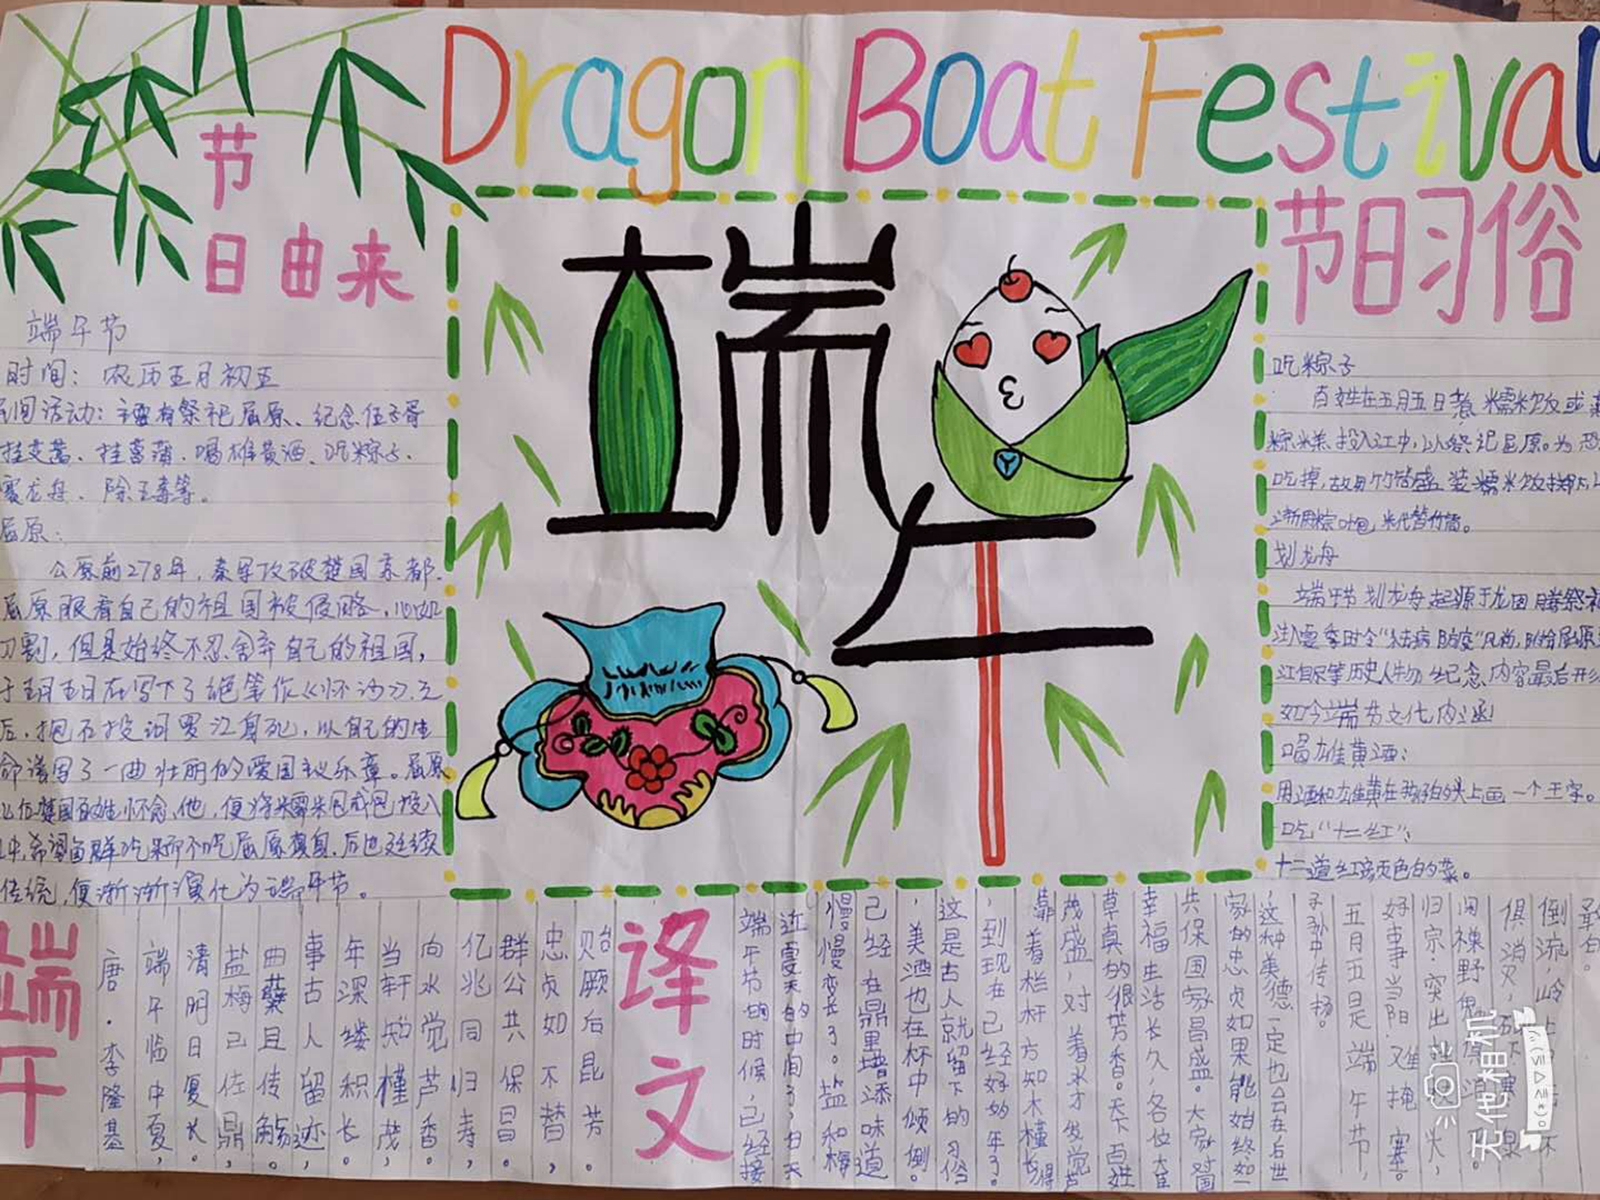 Dragon Boat Festival
节
日由来
端午节
时间：农历五月初五
间活动：主要有祭祀屈原、纪念伍子胥
挂艾蒿、挂菖蒲、喝雄黄酒、吃粽子、
赛龙舟、除五毒等。
屈原：
公原前278年，秦军攻破楚国京都。
屈原眼看自己的祖国被侵略，心如
刀割，但是始终不忍舍弃自己的祖国，
于五月五日在写下了绝笔作《怀沙》之
后，抱石投汨罗江身死，以自己的生
命谱写了一曲壮丽的爱国主义乐章。屈原
传统，便渐渐演化为端午节。
端午
节日习俗
吃粽子
百姓在五月五日煮糯米饭或蒸
粽糕投入江中，以祭记屈原。为恐
吃掉，故用竹筒盛装糯米饭掷下
渐用粽叶包米代替竹筒。
划龙舟
端午节划龙舟起源于龙图腾祭祀
注入夏季时令"祛病防疫"风尚，附会屈原
江自尽等历史人物纪念内容最后形
如今端午节文化内涵
喝雄黄酒：
用酒和雄黄在孩子的头上画一个王字。
吃"十二红"：
十二道红颜色的菜。
端午
唐·李隆基
端午临中夏，
清明日复长。
盐梅已佐鼎，
曲糵且传觞。
事古人留迹，
年深缕积长。
当轩知槿茂，
向水觉芦香。
亿兆同归寿，
群公共保昌。
忠贞如不替，
贻厥后昆芳。
译文
端午节的时候，已经接
近夏天的中间了，白天
慢慢变长了。盐和梅
已经在鼎里增添味道
，美酒也在杯中倾倒。
这是古人就留下的习俗
，到现在已经好好的年了。
靠着栏杆方知木槿长得
茂盛，对着水才发觉芦
草真的很芳香。天下百姓
幸福生活长久，各位大臣
共保国家昌盛。大家对国
家的忠贞如果能始终如一
，这种美德一定也会在后世
子孙中传扬。
五月五是端午节，
无他相机